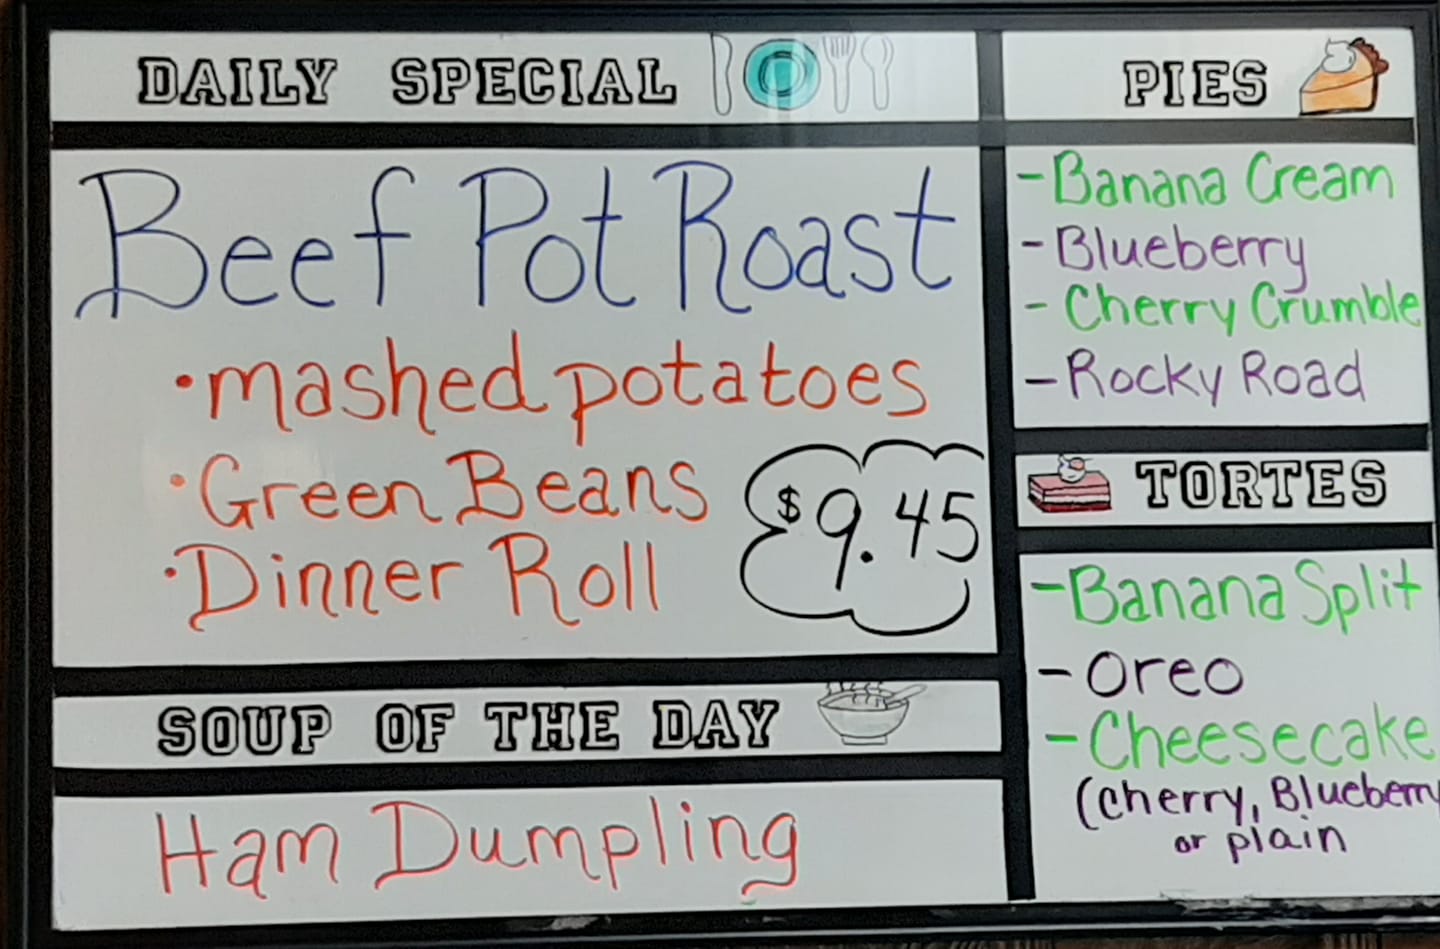 DAILY SPECIAL
Beef Pot Roast
• mashed potatoes
• Green Beans
• Dinner Roll
$9.45
SOUP OF THE DAY
Ham Dumpling
PIES
- Banana Cream
- Blueberry
- Cherry Crumble
- Rocky Road
TORTES
- Banana Split
- Oreo
- Cheesecake
(Cherry, Blueberry
or plain